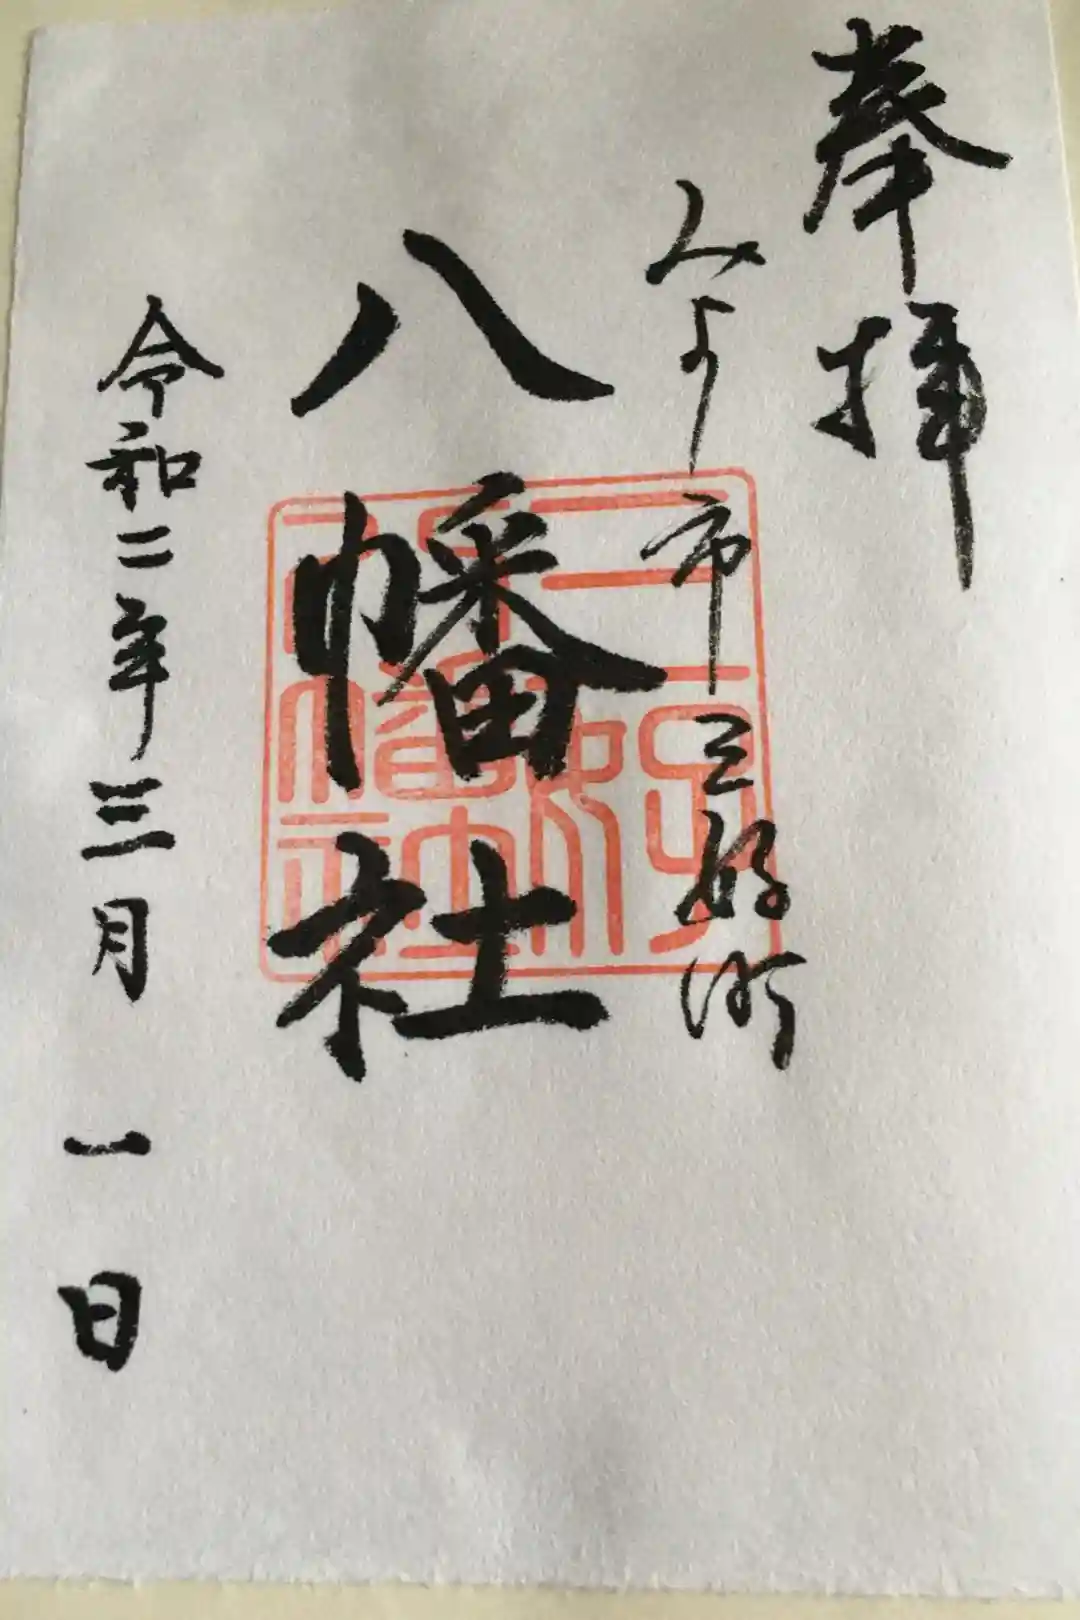 奉拝
みよし市三好町
八幡社
令和二年三月一日
三好
八幡社